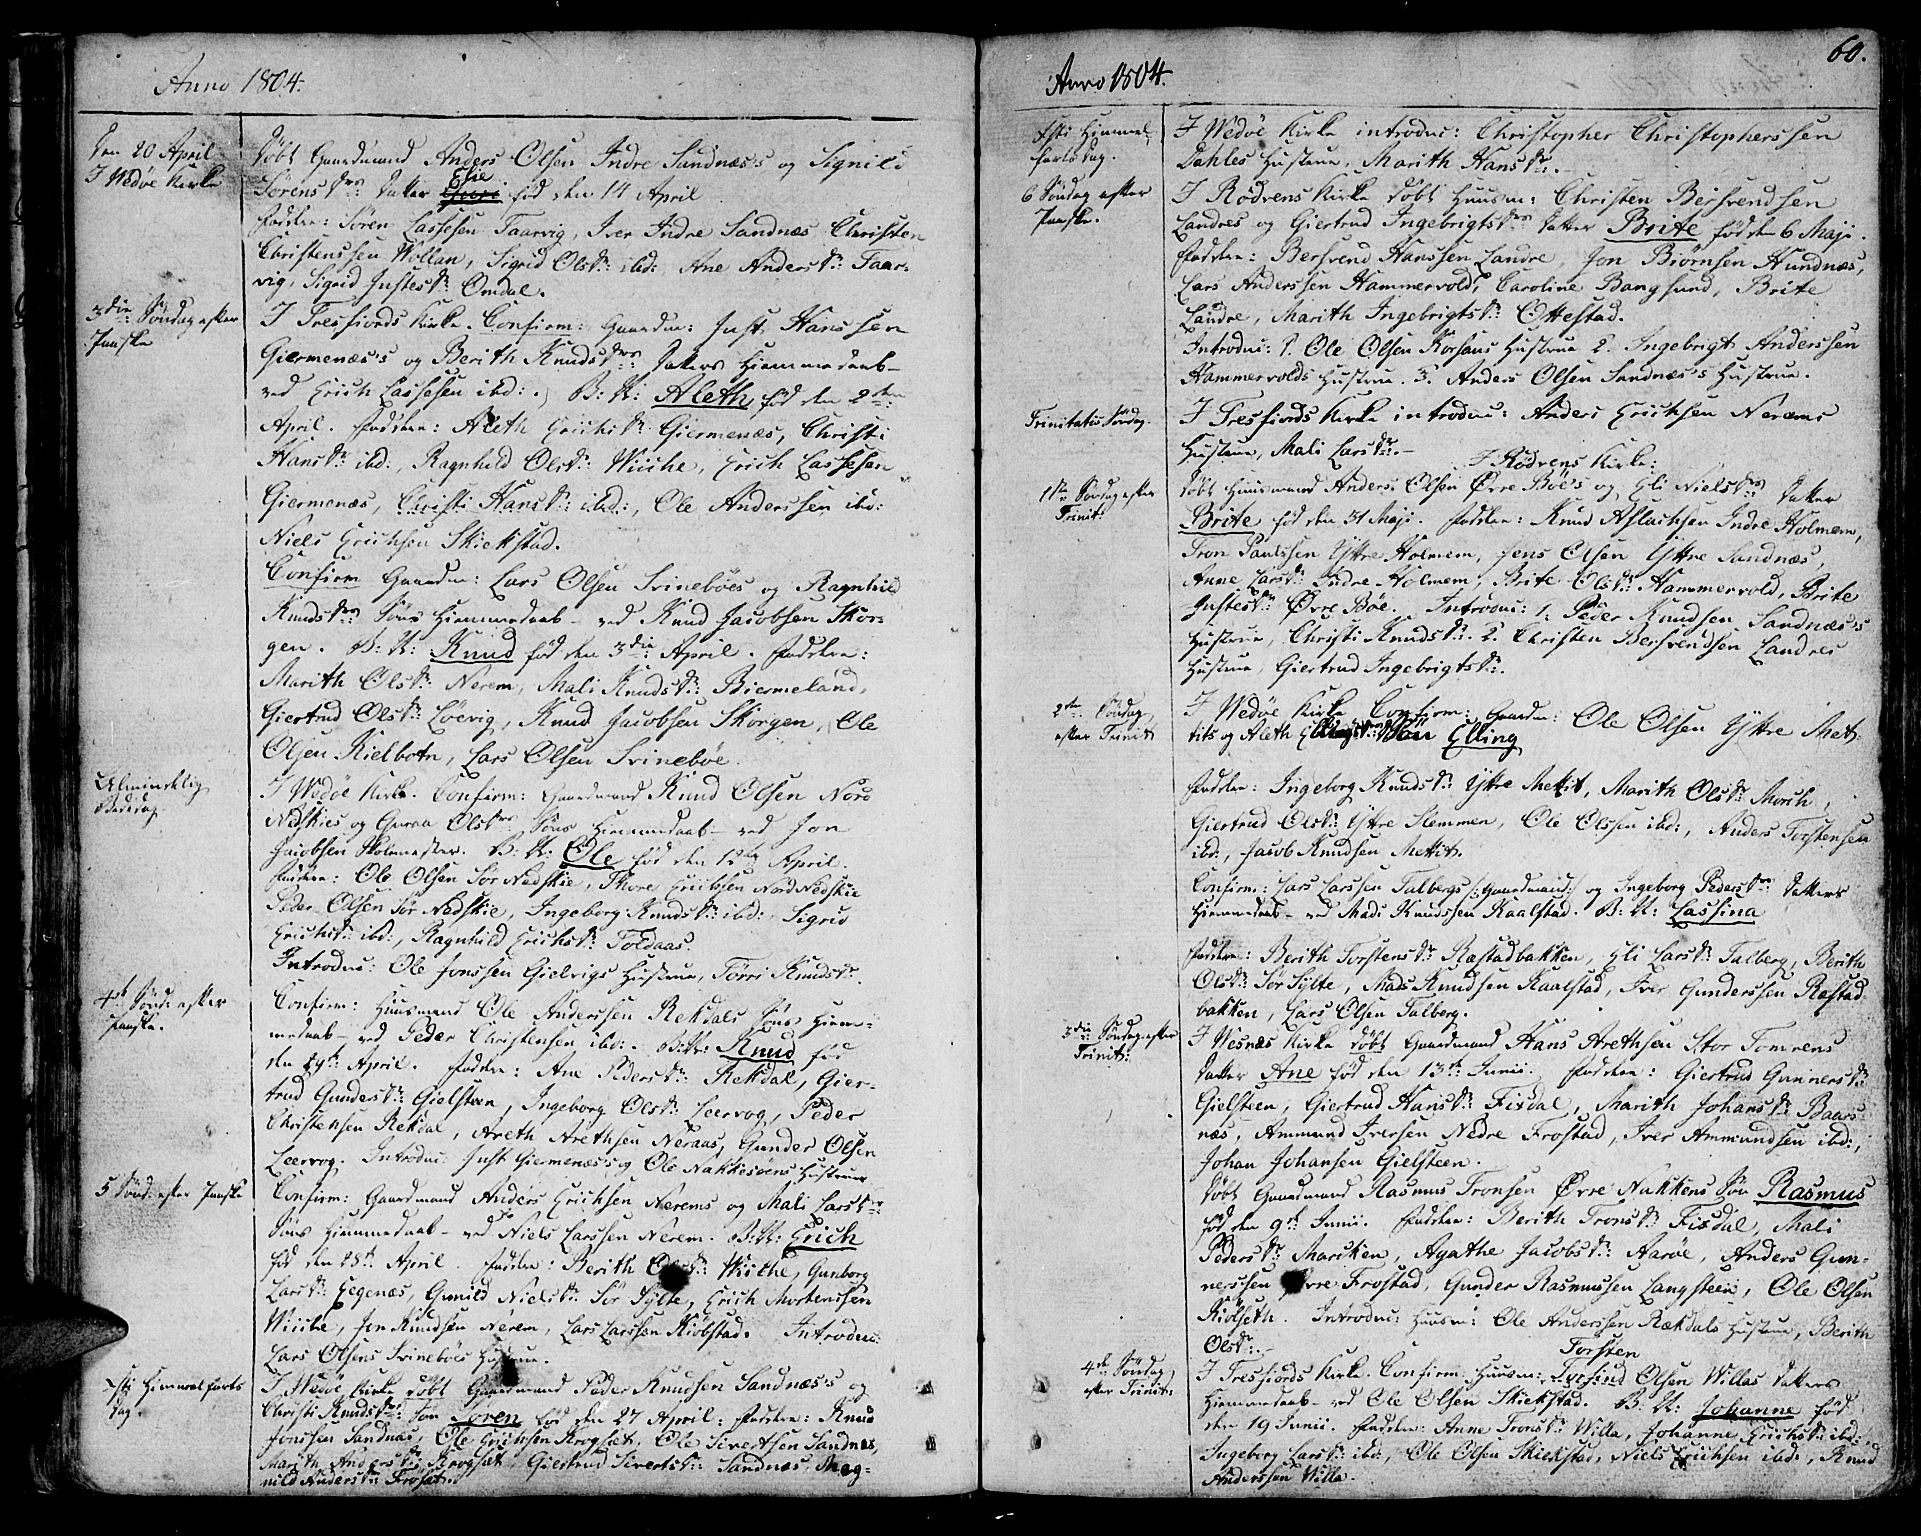 Anno 1804.
Den 20 April
I Wedøe Kirke
Døbt Gaardmand Anders Olsen Indre Sandnæs's og Signild
Sørens dr: Datter Elie fød den 14 April
Faddere: Søren Lassesen Taarvig, Iver Indre Sandnæs, Christen
Christenssen Wollan, Sigrid Olsdr: ibd: Ane Andersdr: Taar-
vig, Sigrid Justesdr: Omdal.
3die Søndag efter
Paaske
I Tresfiords Kirke. Confirm: Gaardm: Just Hanssen
Giermenæs's og Berith Knudsdrs: Datters Hiemmedaab
ved Erich Lassesen ibd:. B: N: Aleth fød den 2den
April. Faddere: Aleth Erichsdr: Giermenæs, Christi
Hansdr: ibd:, Ragnhild Olsdr: Wiiche, Erich Lassesen
Giermenæs, Christi Hansdr: ibd:, Ole Anderssen ibd:
Niels Erichsen Skiekstad.
Confirm Gaardm: Lars Olsen Svinebøes og Ragnhild
Knudsdrs Søns Hiemmedaab - ved Knud Jacobsen Skor-
gen. B: N: Knud fød den 3die April. Faddere:
Marith Olsdr: Nerem, Mali Knudsdr: Biermeland,
Giertrud Olsdr: Løevig, Knud Jacobsen Skorgen, Ole
Olsen Kielbotn, Lars Olsen Svinebøe.
Almindelig
Bededag
I Wedøe Kirke. Confirm: Gaardmand Knud Olsen Nord
Nedskies og Guroa Olsdrs Søns Hiemmedaab - ved Jon
Jacobsen Skolemester. B: N: Ole fød den 12te April.
Faddere: Ole Olsen Sør Nedskie, Thore Erichsen Nord Nedskie
Peder Olsen Sør Nedskie, Ingeborg Knudsdr: ibd: Sigrid
Erichsdr: ibd:, Ragnhild Erichsdr: Toldaas.
Introduc: Ole Jonssen Gielvigs Hustrue, Tørri Knudsdr.
4de Sønd: efter
Paaske.
Confirm: Huusmand Ole Anderssen Rekdals Søns Hiem-
medaab - ved Peder Christensen ibd:. B: N: Knud fød
den 19de April. Faddere: Ane Pedersdr: Rekdal, Gier-
trud Gundersdr: Gielsteen, Ingeborg Olsdr: Leervog, Peder
Christensen Rekdal, Areth Arethsen Neraas, Gunder Olsen
Leervog. Introduc: Just Giermenæs's og Ole Nakkesøens Hustruer
5 Sønd: efter Paaske
Confirm: Gaardmand Anders Erichsen Nerems og Mali Larsdrs
Søns Hiemmedaab - ved Niels Larssen Nerem. B: N: Erich
fød den 28de April. Faddere: Berith Olsdr: Wiiche, Gunborg
Larsdr: Gegenæs, Gunild Nielsdr: Sør Sylte, Erich Mortenssen
Wiiche, Jon Knudsen Nerem, Lars Larssen Kiøbstad. Introduc:
Lars Olsens Svinebøes Hustrue.
Xsti Himmelfarts
dag.
I Wedøe Kirke døbt Gaardmand Peder Knudsen Sandnæs's og
Christi Knudsdrs: Søn Søren fød den 27 April: Faddere: Knud
Jonssen Sandnæs, Ole Erichsen Krogsæt, Ole Sivertsen Sandnæs,
Marith Andersdr: Krogsæt, Giertrud Sivertsdr: Sandnæs, Mag-
nild Andersdr: Frosæt
60.
Anno 1804.
Xsti Himmel
farts dag.
I Wedøe Kirke introduc: Christopher Christopherssen
Dahles Hustrue, Marith Hansdr:.
6 Søndag efter
Paaske.
I Rødvens Kirke døbt Huusm: Christen Bersvendsen
Landres og Giertrud Ingebrigtsdrs Datter Brite fød den 6 Maji.
Faddere: Bersvend Hanssen Landre, Jon Biørnsen Hundnæs,
Lars Anderssen Hammervold, Caroline Bangsund, Brite
Landre, Marith Ingebrigtsdr: Ottestad.
Introduc: 1. Ole Olsen Korsans Hustrue 2. Ingebrigt Anderssen
Hammervolds Hustrue. 3. Anders Olsen Sandnæs's Hustrue.
Trinitatis Søndag.
I Tresfiords Kirke introduc: Anders Erichsen Nerems
Hustrue, Mali Larsdr:.
I Rødvens Kirke:
1ste Søndag efter
Trinit:
Døbt Huusmand Anders Olsen Øvre Bøe's og Eli Nielsdrs Datter
Brite fød den 31 Maji. Faddere: Knud Aslachsen Indre Holmem,
Tron Paulssen Yttre Holmem, Jens Olsen Yttre Sandnæs,
Anne Larsdr: Indre Holmem, Brite Olsdr: Hammervold, Brite
Justesdr: Øvre Bøe. Introduc: 1. Peder Knudsen Sandnæs's
Hustrue, Christi Knudsdr: 2. Christen Bersvendsen Landres
Hustrue, Giertrud Ingebrigtsdr:.
2den Søndag
efter Trinit:
I Wedøe Kirke Confirm: Gaardm: Ole Olsen Yttre Met-
tits og Aleth Søn Elling
Faddere: Ingeborg Knudsdr: Yttre Mettit, Marith Olsdr: Morch,
Giertrud Olsdr: Yttre Slemmen, Ole Olssen ibd:, Anders Torstensen
ibd:, Jacob Knudsen Mettit.
Confirm: Lars Larssen Talbergs /:Gaardmand:/ og Ingeborg Pedersdrs Datters
Hiemmedaab - ved Mads Knudssen Kaalstad. B: N: Lassina
Faddere: Berith Torstensdr: Ræstadbakken, Eli Larsdr: Talberg, Berith
Olsdr: Sør Sylte, Mads Knudsen Kaalstad, Iver Gunderssen Ræstad-
bakken, Lars Olsen Talberg.
3die Søndag efter
Trinit:
I Wesnæs Kirke døbt Gaardmand Hans Arethsen Stor Tomrens
Datter Ane fød den 13de Junii. Faddere: Giertrud Gunnersdr:
Gielsteen, Giertrud Hansdr: Fixdal, Marith Johansdr: Baars-
næs, Ammund Iversen Nedre Frostad, Iver Ammundsen ibd:,
Johan Johansen Gielsteen.
Døbt Gaardmand Rasmus Tronsen Øvre Nakkens Søn Rasmus
fød den 9de Junii. Faddere: Berith Tronsdr: Fixdal, Mali
Pedersdr: Marsken, Agathe Jacobsdr: Aarøe, Anders Gun-
nerssen Øvre Frostad, Gunder Rasmussen Langsteen, Ole Olsen
Kiolseth. Introduc: Huusm: Ole Anderssen Rækdals Hustrue, Berith
Olsdr:.
4de Søndag
efter Trinit:
I Tresfiords Kirke. Confirm Huusm: Torsten Olsen Willas Datters
Hiemmedaab - ved Ole Olsen Skiekstad. B: N: Johanne fød
den 19 Junii. Faddere: Anne Tronsdr: Willa, Johanne Erichsdr: ibd:,
Ingeborg Larsdr: ibd:, Ole Olsen Skiekstad, Niels Erichsen ibd:, Knud
Anderssen Willa.